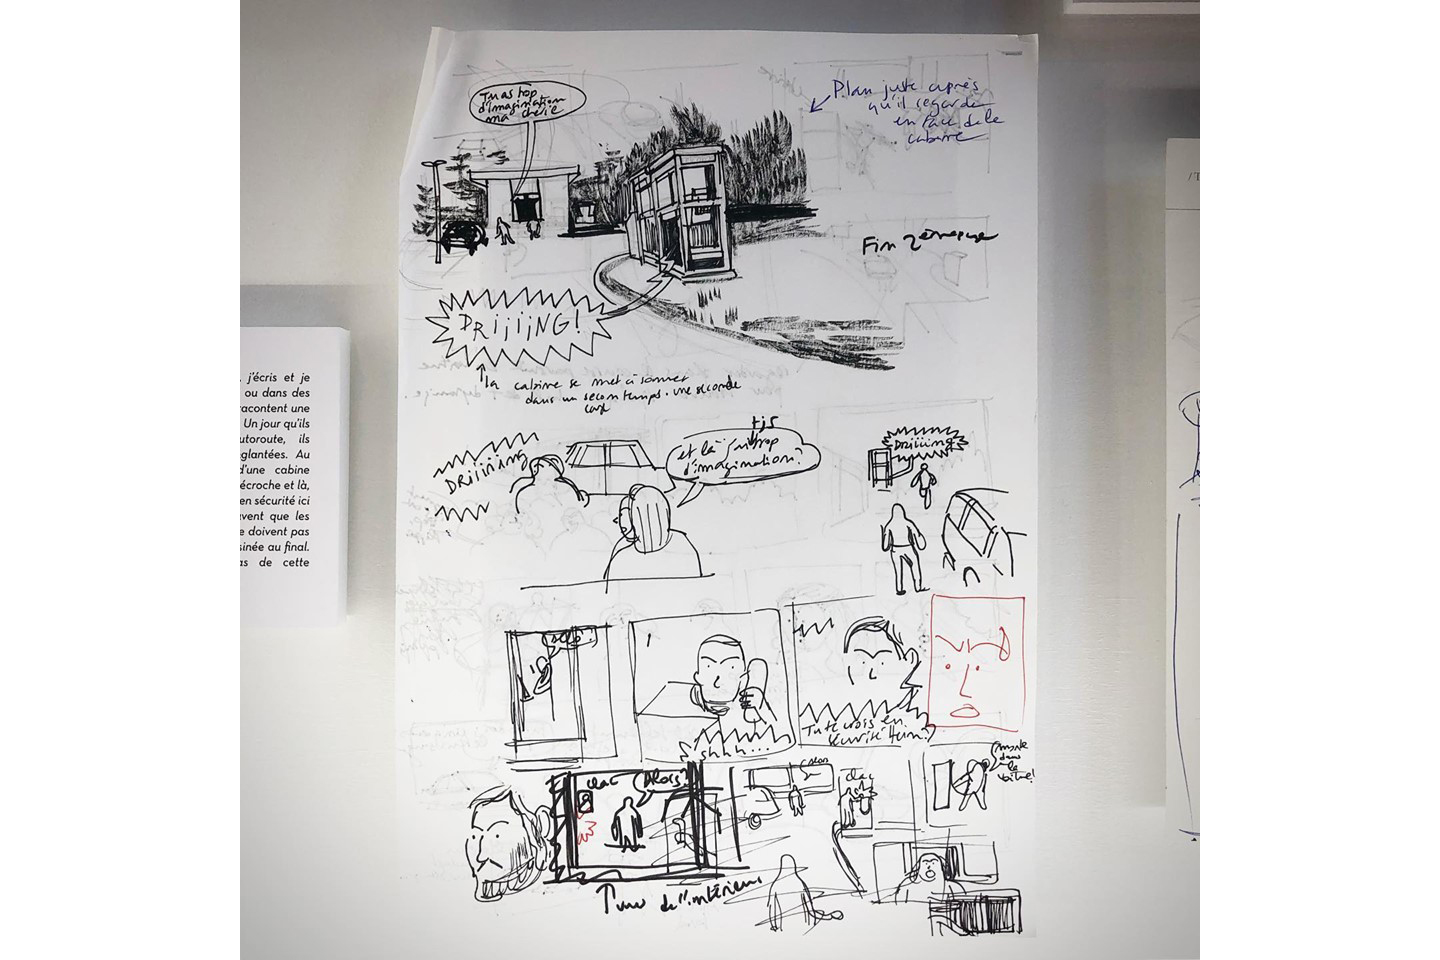 Tu as trop
d'imagination
ma chérie
Plan juste après
qu'il regarde
en face de la
cabine
Fin
DRiiiiNG!
la cabine se met à sonner
dans un second temps. une seconde
case
DRiiiiNG
tjs
et là j'ai trop
d'imagination?
DRiiiing
, j'écris et je
ou dans des
racontent une
Un jour qu'ils
utoroute, ils
glantées. Au
d'une cabine
écroche et là,
en sécurité ici
uvent que les
e doivent pas
sinée au final.
as de cette
shhh...
Tu te crois en
sécurité Hein?
clac
Alors?
clac
monte
dans
la
voiture!
vue de l'intérieur